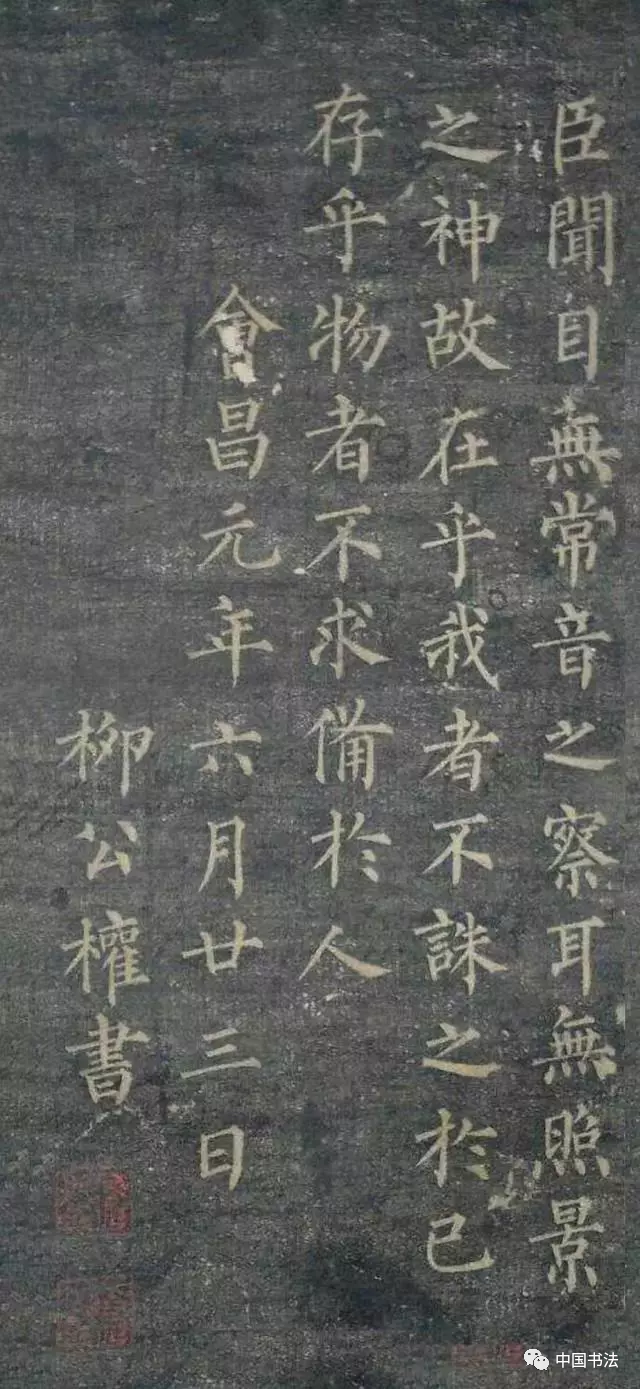 臣聞目無常音之察耳無照景
之神故在乎我者不誅之於已
存乎物者不求備於人
會昌元年六月廿三日
柳公權書
中国书法